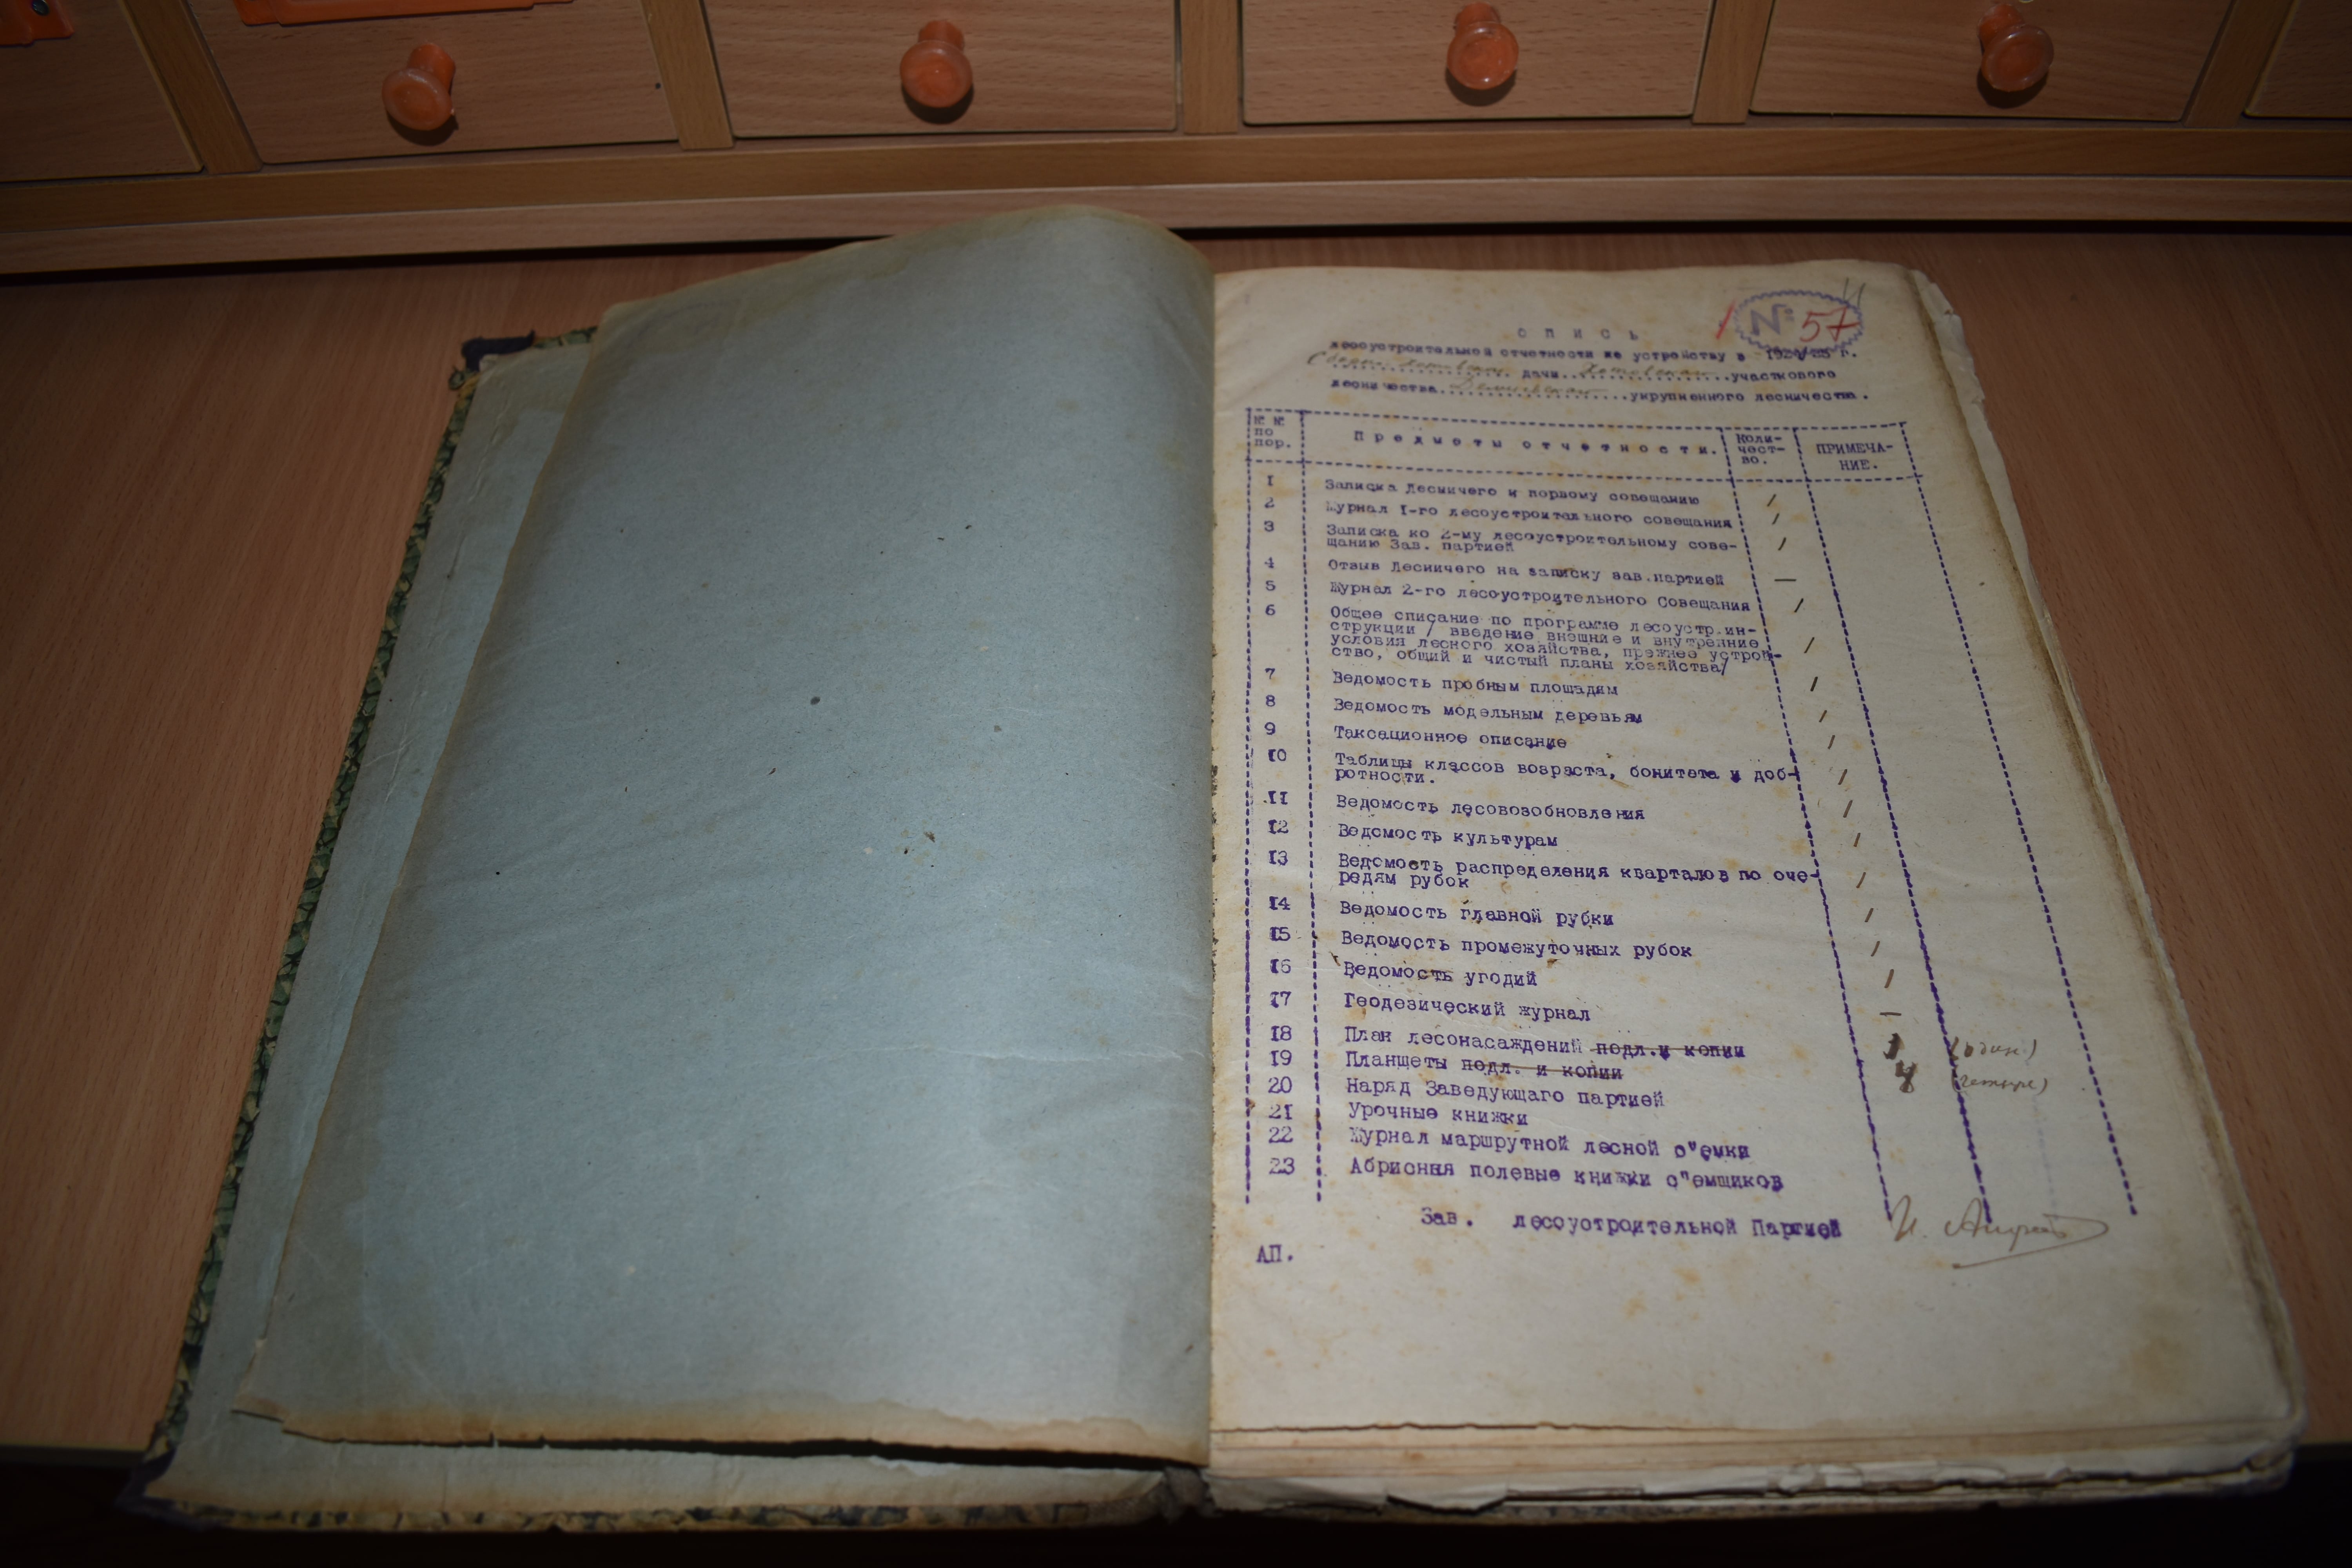 № 57
О П И С Ь
лесоустроительной отчетности по устройству в г.
дачи участкового
лесничества укрупненного лесничества.
№ №
по
пор.
Предметы отчетности.
Коли-
чест-
во.
ПРИМЕЧА-
НИЕ.
I Записка Лесничего к первому совещанию /
2 Журнал I-го лесоустроительного совещания /
3 Записка ко 2-му лесоустроительному сове-
щанию Зав. партией /
4 Отзыв Лесничего на записку зав.партией —
5 Журнал 2-го лесоустроительного Совещания /
6 Общее списание по программе лесоустр.ин-
струкции / введение внешние и внутренние
условия лесного хозяйства, прежнее устрой-
ство, общий и чистый планы хозяйства/ /
7 Ведомость пробным площадям /
8 Ведомость модельным деревьям /
9 Таксационное описание /
I0 Таблицы классов возраста, бонитета и доб-
ротности. /
II Ведомость лесовозобновления /
I2 Ведомость культурам /
I3 Ведомость распределения кварталов по оче-
редям рубок /
I4 Ведомость главной рубки /
I5 Ведомость промежуточных рубок /
I6 Ведомость угодий /
I7 Геодезический журнал —
I8 План лесонасаждений подл.и копии 1 (один.)
I9 Планшеты подл. и копии 4 (четыре)
20 Наряд Заведующаго партией
21 Урочные книжки
22 Журнал маршрутной лесной с"емки
23 Абрисныя полевые книжки с"емщиков
Зав. лесоустроительной Партией
АП.